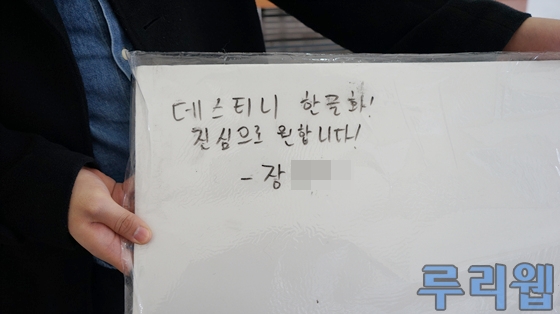 데스티니 한글화!
진심으로 원합니다!
- 장
루리웹